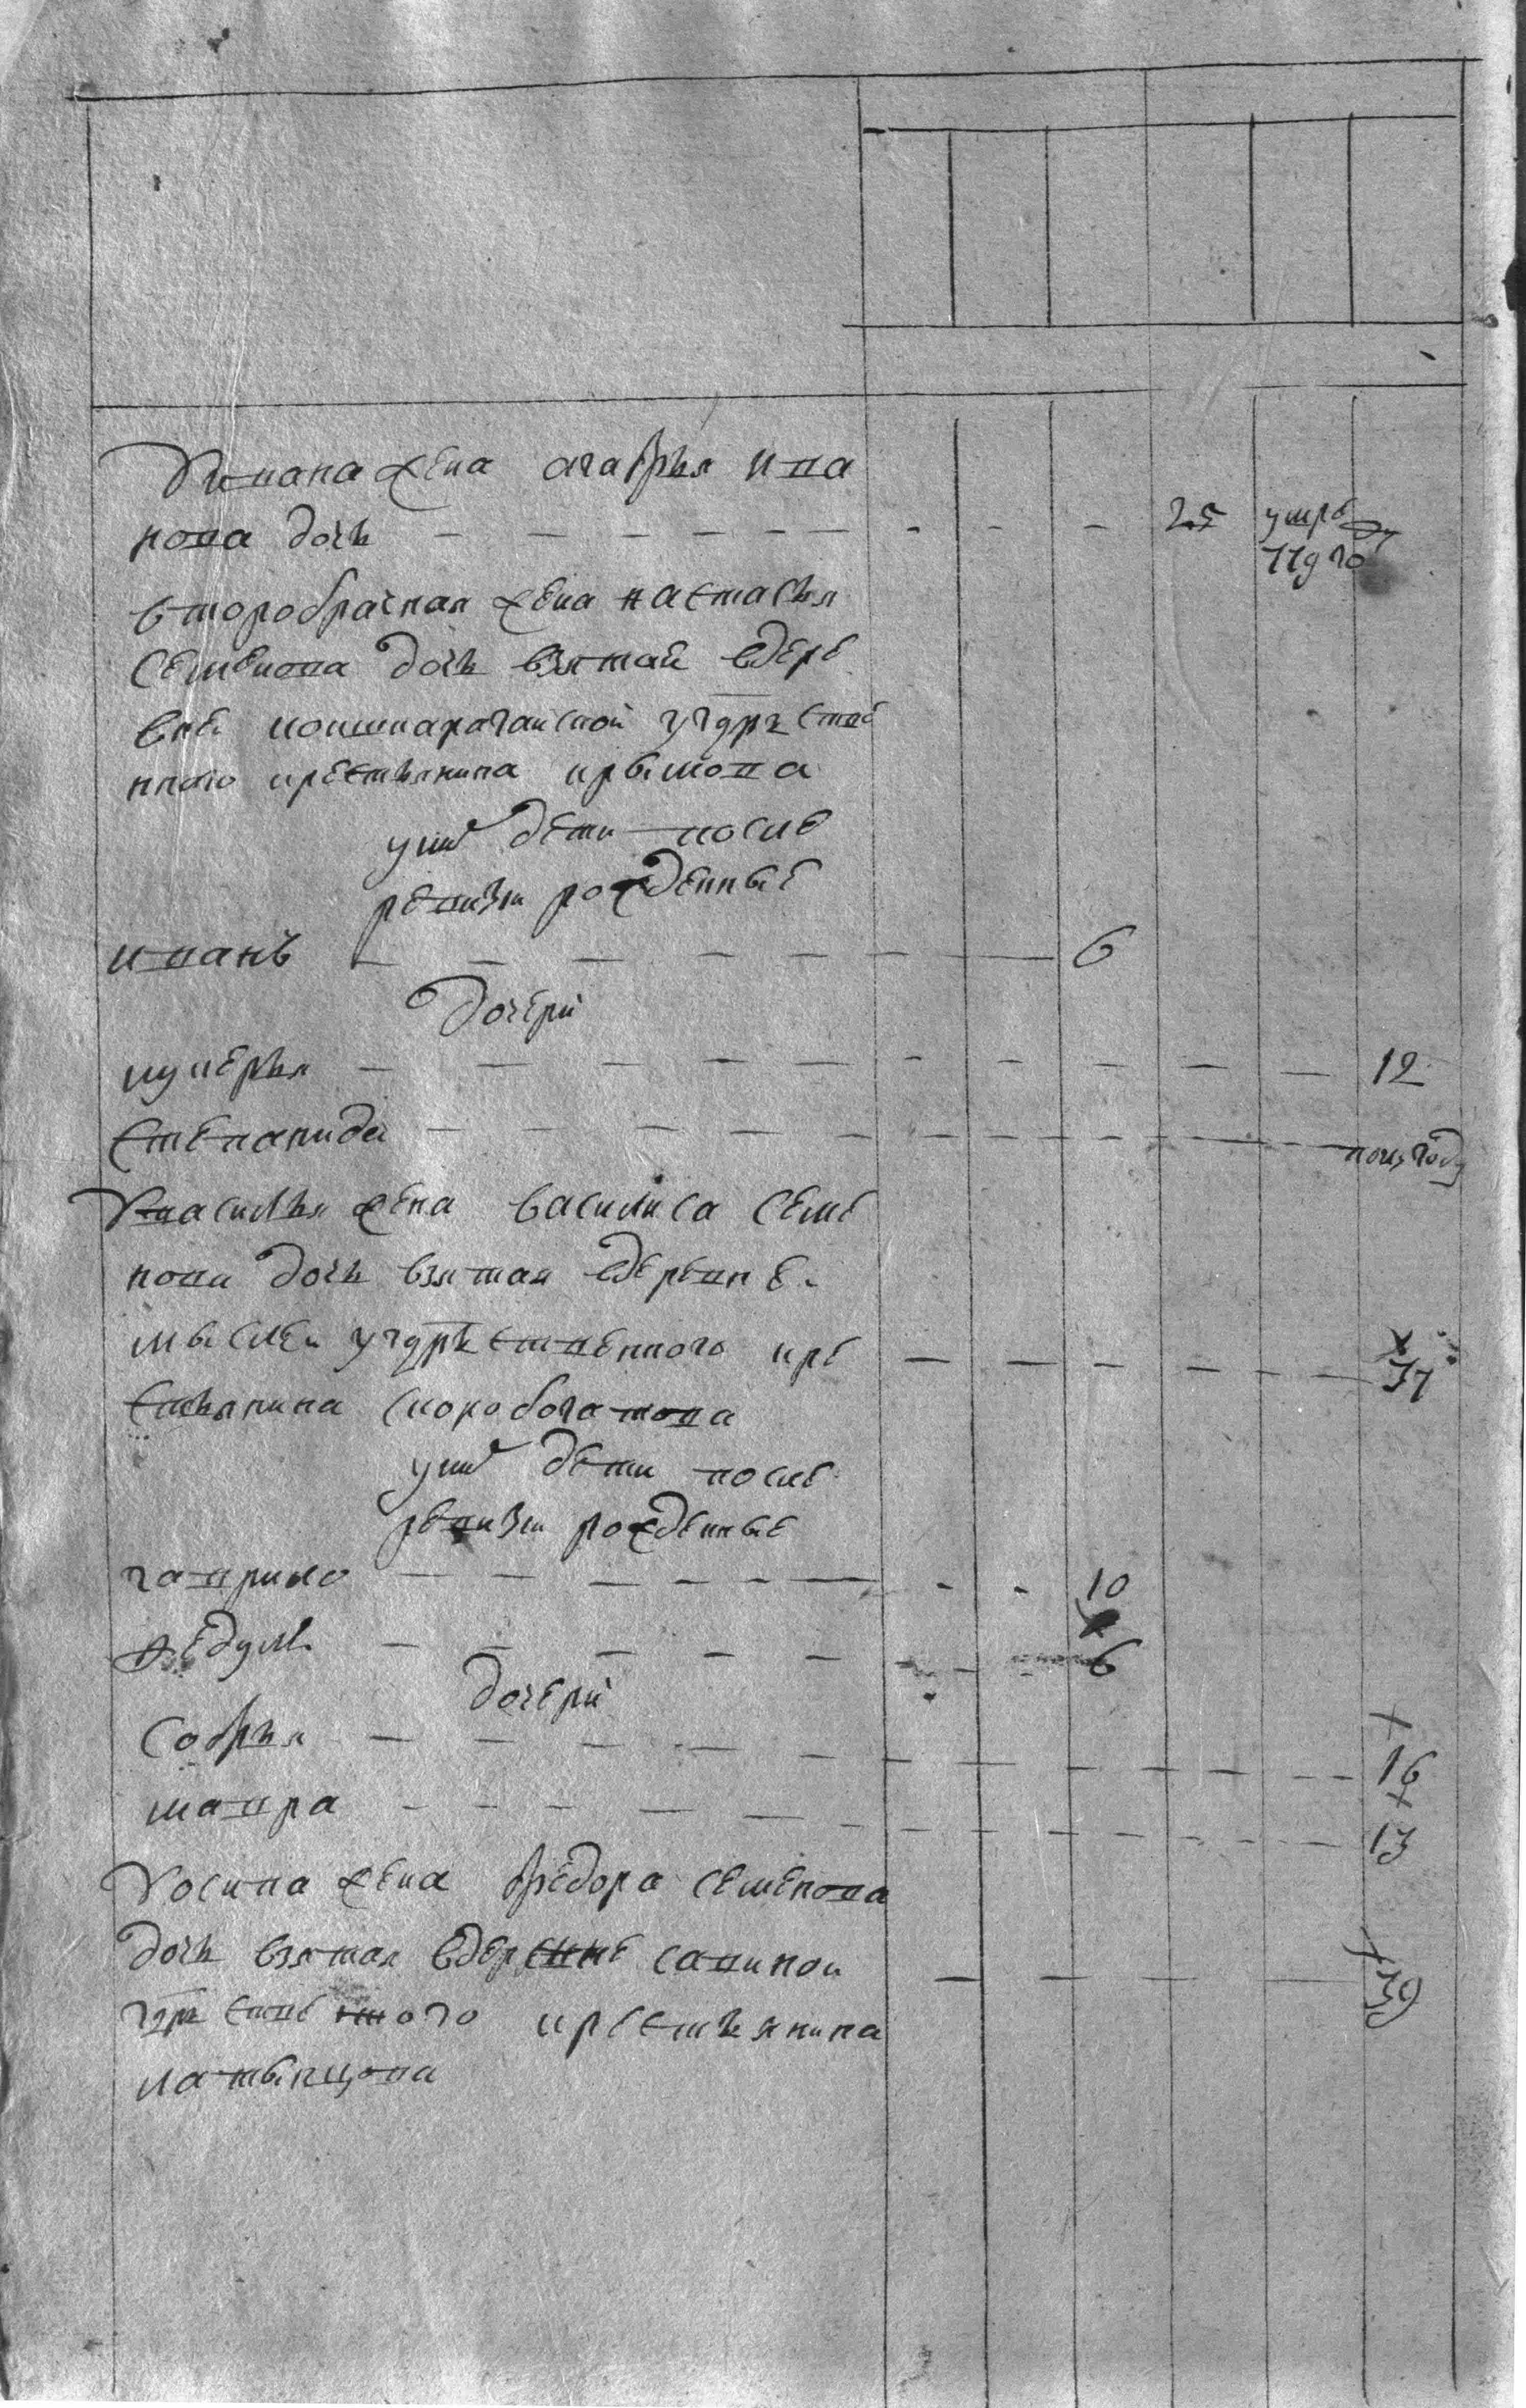 Уивана жена агафья ива
нова дочь 25 умре
второбрачная жена настасья
Семенова дочь взятая вдере
вне кошкарагайской угдрства
нного крестьянина крымова
уних дети после
ревизии рожденные
иванъ 6
дочери
лукерья 12
Степанида полугоду
Увасилья жена василиса семе
нова дочь взятая вдеревне
мыслей угдрственного кре 37
стьянина скоробогатова
уних дети после
ревизии рожденные
гаврило 10
федул 6
дочери
Софья 16
мавра 13
Уосипа жена федора семенова
дочь взятая вдеревне савиной 39
гдрственного крестьянина
латынцова